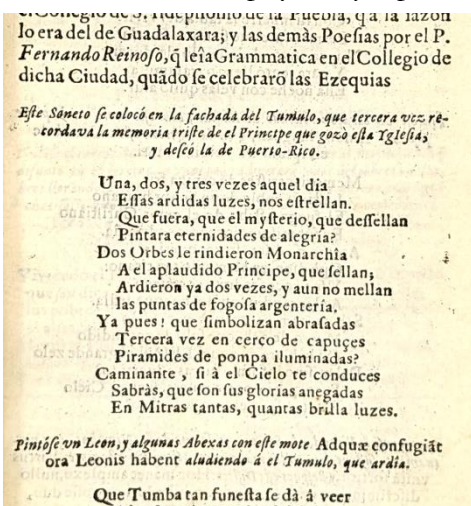 el Collegio de S. Ildephonso de la Puebla, q̃ a la sazon
lo era del de Guadalaxara; y las demàs Poesias por el P.
Fernando Reinoso, q̃ leîa Grammatica en el Collegio de
dicha Ciudad, quãdo se celebrarõ las Ezequias
Este Soneto se colocó en la fachada del Tumulo, que tercera vez re-
cordava la memoria triste de el Principe que gozò esta Yglesia,
y deseó la de Puerto-Rico.
Una, dos, y tres vezes aquel dia
Essas ardidas luzes, nos estrellan.
Que fuera, que el mysterio, que dessellan
Pintara eternidades de alegria?
Dos Orbes le rindieron Monarchia
A el aplaudido Principe, que sellan;
Ardieron ya dos vezes, y aun no mellan
las puntas de fogosa argenteria.
Ya pues! que simbolizan abrasadas
Tercera vez en cerco de capuçes
Piramides de pompa iluminadas?
Caminante, si à el Cielo te conduces
Sabràs, que son sus glorias anegadas
En Mitras tantas, quantas brilla luzes.
Pintóse vn Leon, y algunas Abexas con este mote Adquæ confugiãt
ora Leonis habent aludiendo á el Tumulo, que ardia.
Que Tumba tan funesta se dà â veer